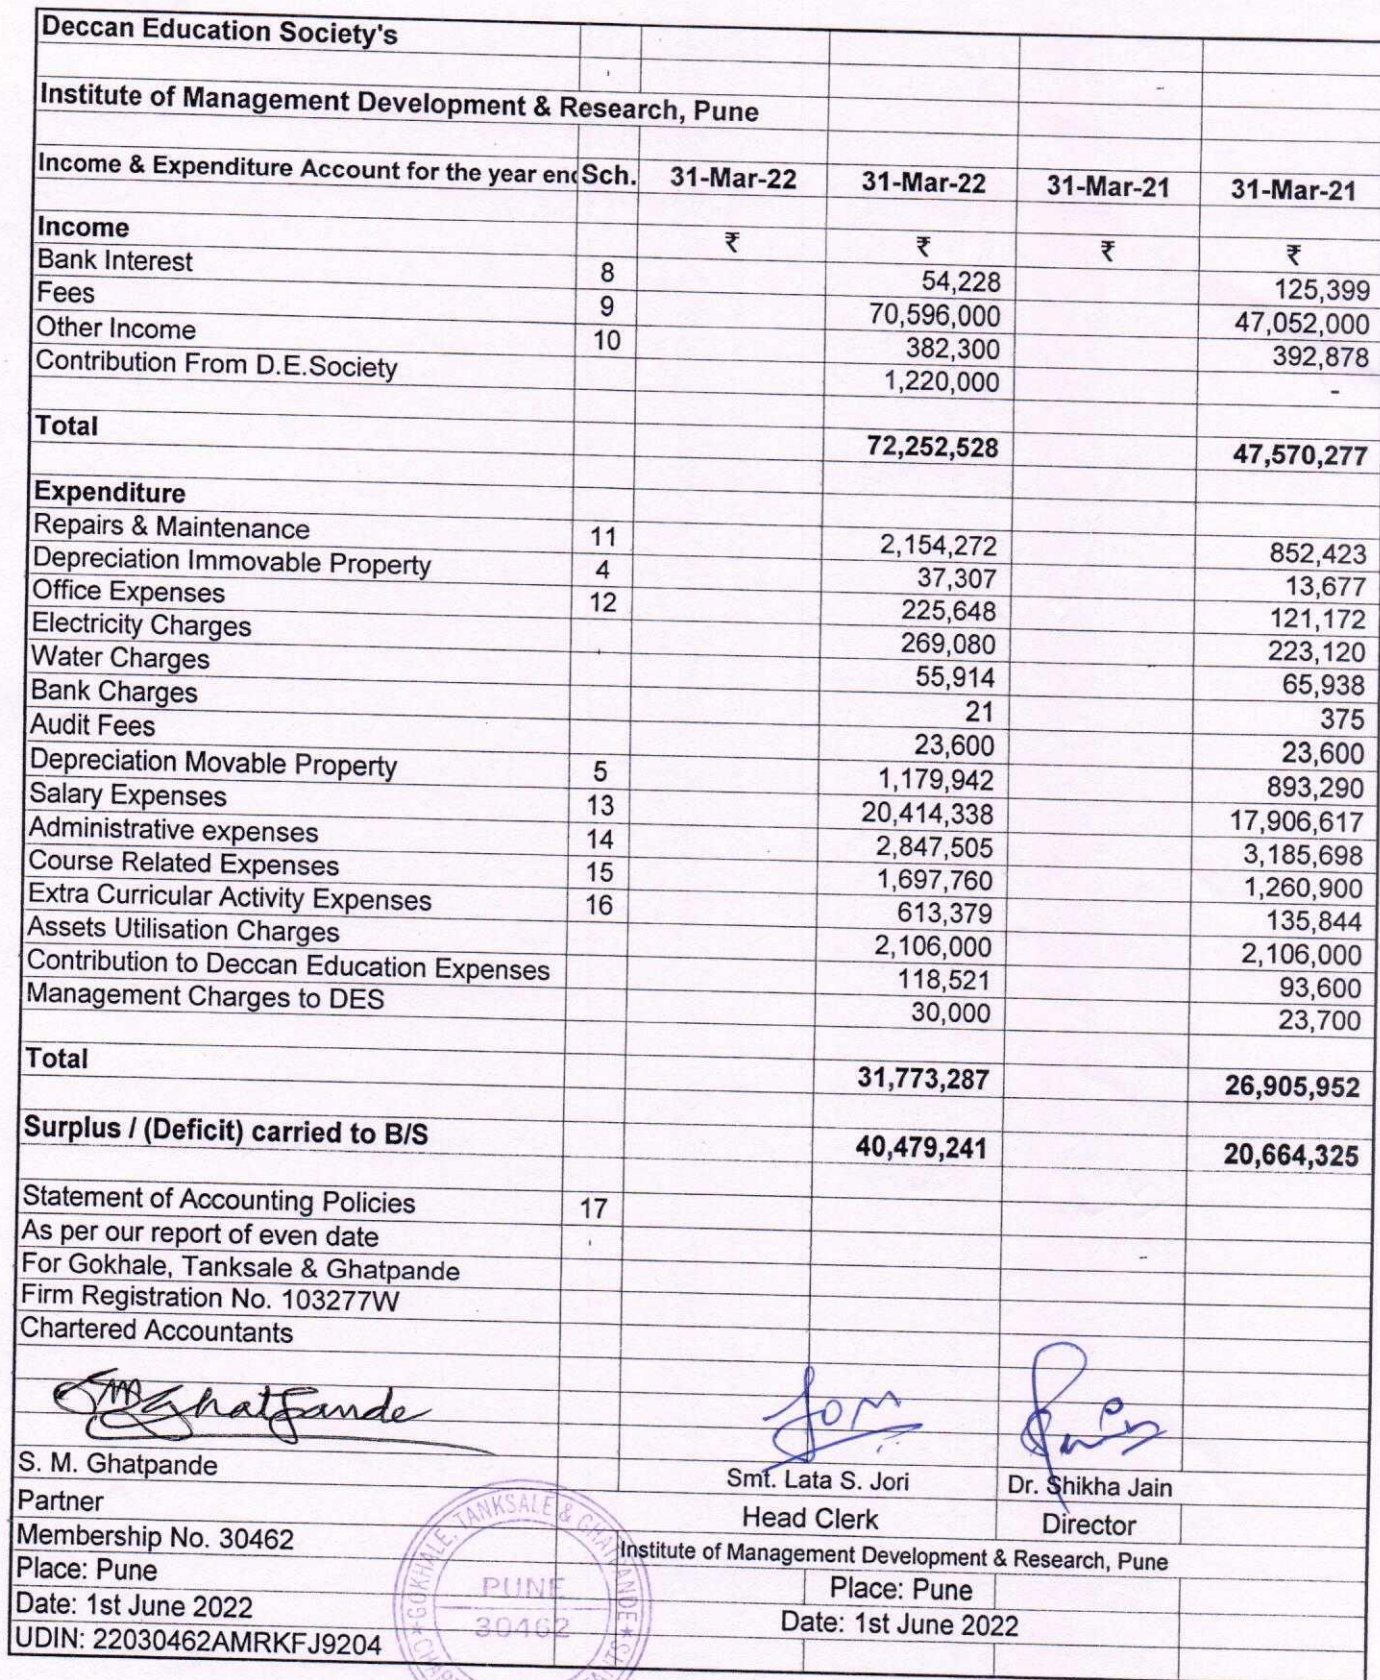 Deccan Education Society's
Institute of Management Development & Research, Pune
Income & Expenditure Account for the year end Sch. 31-Mar-22 31-Mar-22 31-Mar-21 31-Mar-21
Income ₹ ₹ ₹ ₹
Bank Interest 8 54,228 125,399
Fees 9 70,596,000 47,052,000
Other Income 10 382,300 392,878
Contribution From D.E.Society 1,220,000 -
Total 72,252,528 47,570,277
Expenditure
Repairs & Maintenance 11 2,154,272 852,423
Depreciation Immovable Property 4 37,307 13,677
Office Expenses 12 225,648 121,172
Electricity Charges 269,080 223,120
Water Charges 55,914 65,938
Bank Charges 21 375
Audit Fees 23,600 23,600
Depreciation Movable Property 5 1,179,942 893,290
Salary Expenses 13 20,414,338 17,906,617
Administrative expenses 14 2,847,505 3,185,698
Course Related Expenses 15 1,697,760 1,260,900
Extra Curricular Activity Expenses 16 613,379 135,844
Assets Utilisation Charges 2,106,000 2,106,000
Contribution to Deccan Education Expenses 118,521 93,600
Management Charges to DES 30,000 23,700
Total 31,773,287 26,905,952
Surplus / (Deficit) carried to B/S 40,479,241 20,664,325
Statement of Accounting Policies 17
As per our report of even date
For Gokhale, Tanksale & Ghatpande
Firm Registration No. 103277W
Chartered Accountants
SMGhatpande
S. M. Ghatpande Smt. Lata S. Jori Dr. Shikha Jain
Partner Head Clerk Director
Membership No. 30462 Institute of Management Development & Research, Pune
Place: Pune Place: Pune
Date: 1st June 2022 Date: 1st June 2022
UDIN: 22030462AMRKFJ9204
GOKHALE, TANKSALE & GHATPANDE
PUNE
30462